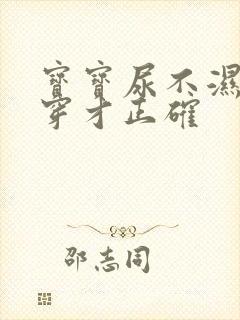 寶寶尿不濕
穿才正確
邵志同